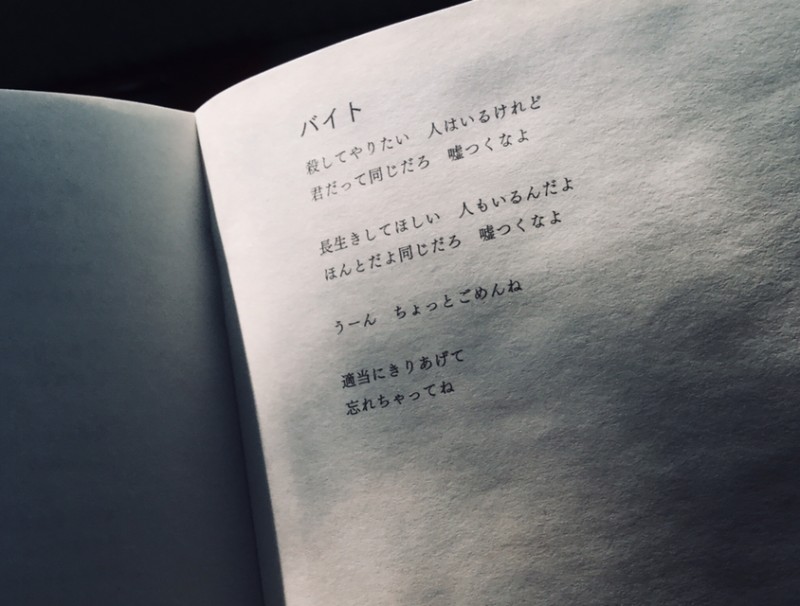 バイト
殺してやりたい　人はいるけれど
君だって同じだろ　嘘つくなよ
長生きしてほしい　人もいるんだよ
ほんとだよ同じだろ　嘘つくなよ
うーん　ちょっとごめんね
適当にきりあげて
忘れちゃってね